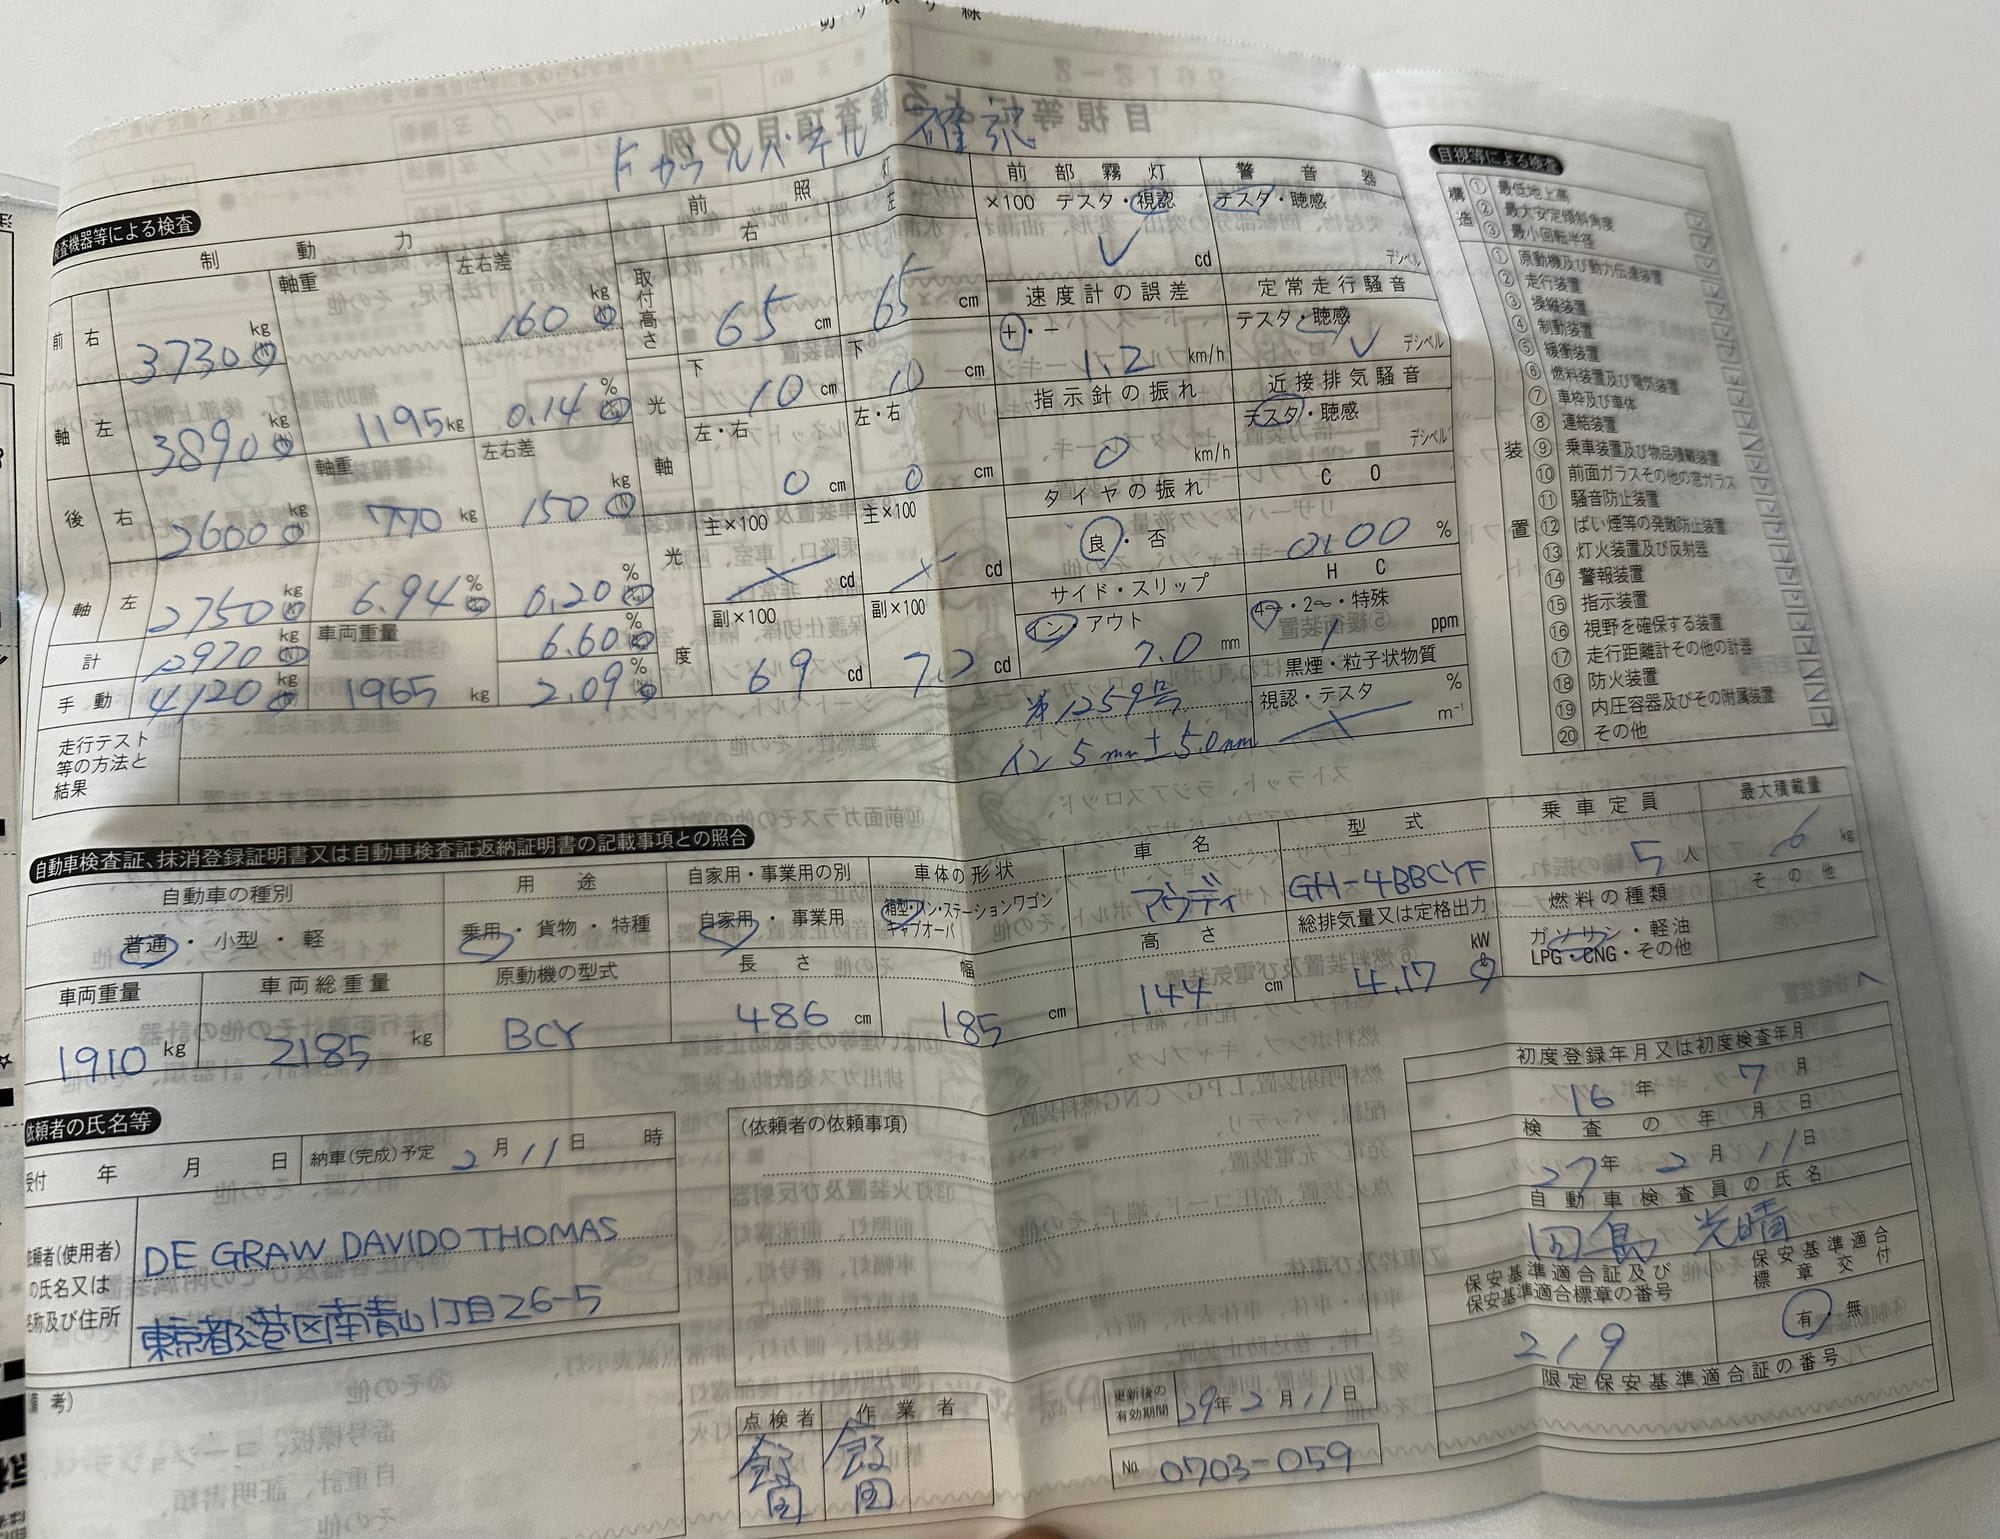 Fカウルパネル確認
検査機器等による検査
制動力
前照灯
前部霧灯
×100 テスタ・視認
cd
警音器
テスタ・聴感
デシベル
前軸
右 37300 kg N
左 3890 kg N
軸重
1195 kg
左右差
160 kg N
0.14 %
後軸
右 2600 kg N
左 2750 kg N
軸重
770 kg
6.94 %
左右差
150 kg N
0.20 %
計 12970 kg N
車両重量
1965 kg
6.60 %
手動 4120 kg N
2.09 %
取付高さ
右 65 cm
左 65 cm
光軸
下 10 cm
下 10 cm
左・右 0 cm
左・右 0 cm
光度
主×100 cd
主×100 cd
副×100 69 cd
副×100 cd
速度計の誤差
+・－ 1.2 km/h
指示針の振れ
0 km/h
タイヤの振れ
良・否
サイド・スリップ
イン アウト
mm
定常走行騒音
テスタ・聴感
デシベル
近接排気騒音
テスタ・聴感
デシベル
CO
0.00 %
HC
4〜・2〜・特殊
1 ppm
黒煙・粒子状物質
視認・テスタ %
m⁻¹
第1259号
イン 5mm±5.0mm
走行テスト等の方法と結果
目視等による検査
構造
① 最低地上高
② 最大安定傾斜角度
③ 最小回転半径
装置
① 原動機及び動力伝達装置
② 走行装置
③ 操縦装置
④ 制動装置
⑤ 緩衝装置
⑥ 燃料装置及び電気装置
⑦ 車枠及び車体
⑧ 連結装置
⑨ 乗車装置及び物品積載装置
⑩ 前面ガラスその他の窓ガラス
⑪ 騒音防止装置
⑫ ばい煙等の発散防止装置
⑬ 灯火装置及び反射器
⑭ 警報装置
⑮ 指示装置
⑯ 視野を確保する装置
⑰ 走行距離計その他の計器
⑱ 防火装置
⑲ 内圧容器及びその附属装置
⑳ その他
自動車検査証、抹消登録証明書又は自動車検査証返納証明書の記載事項との照合
自動車の種別
普通・小型・軽
用途
乗用・貨物・特種
自家用・事業用の別
自家用・事業用
車体の形状
箱型・バン・ステーションワゴン
キャブオーバ
車名
アウディ
型式
GH-4BBCYF
乗車定員
5 人
最大積載量
kg
車両重量
1910 kg
車両総重量
2185 kg
原動機の型式
BCY
長さ
486 cm
幅
185 cm
高さ
144 cm
総排気量又は定格出力
4.17 kW ℓ
燃料の種類
ガソリン・軽油
LPG・CNG・その他
その他
依頼者の氏名等
受付 年 月 日
納車(完成)予定 2月11日 時
依頼者(使用者)の氏名又は名称及び住所
DE GRAW DAVIDO THOMAS
東京都港区南青山1丁目26-5
(依頼者の依頼事項)
備考)
点検者
飯田
作業者
飯田
更新後の有効期間 29年2月11日
No. 0703-059
初度登録年月又は初度検査年月
16年7月
検査の年月日
27年2月11日
自動車検査員の氏名
田島 光晴
保安基準適合証及び保安基準適合標章の番号
219
保安基準適合標章交付
有・無
限定保安基準適合証の番号